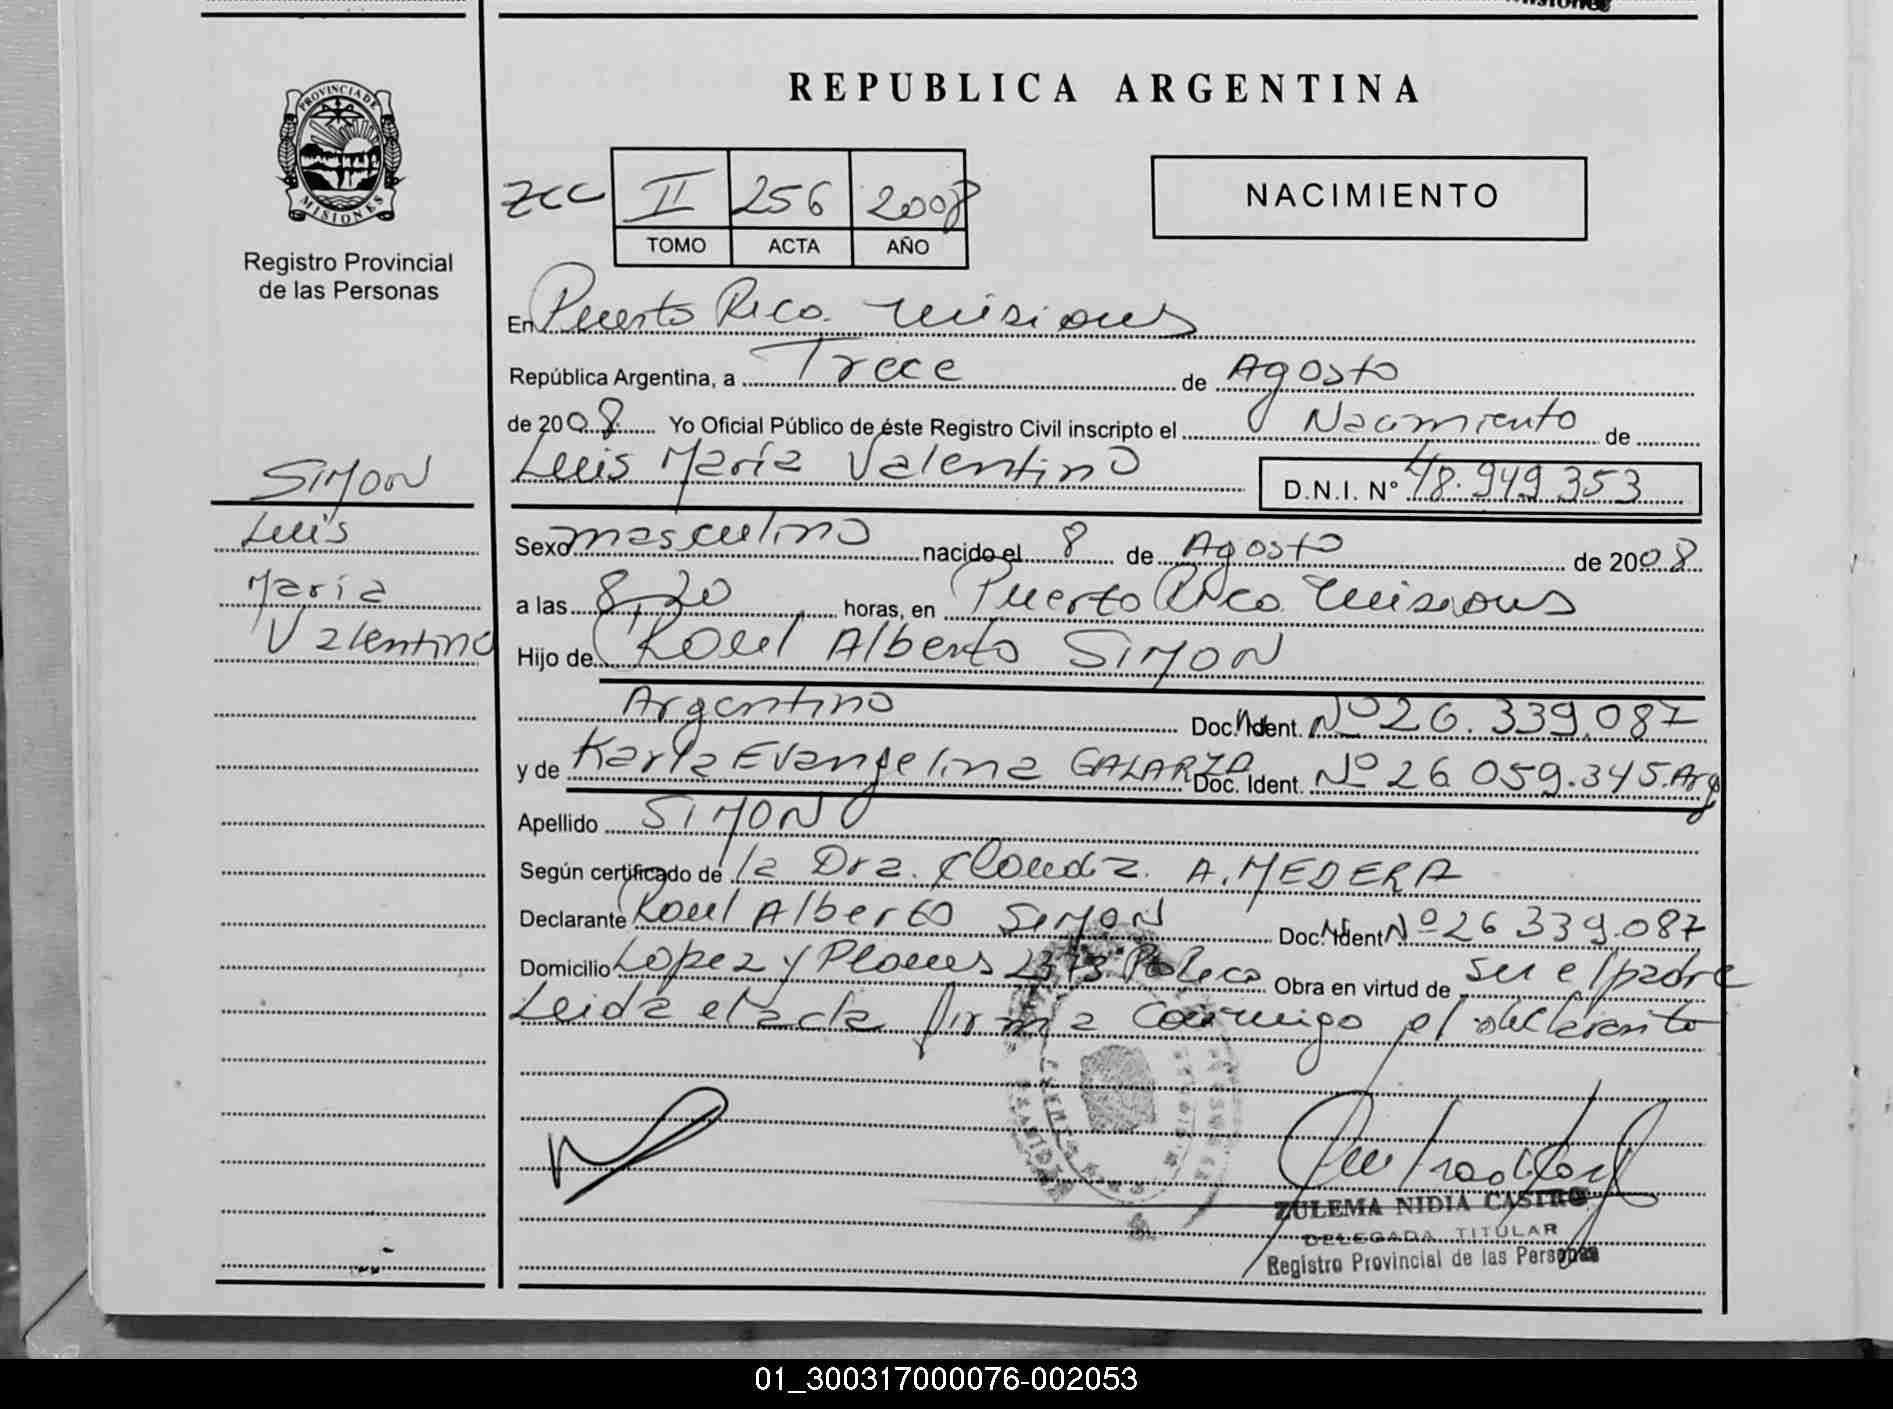 REPUBLICA ARGENTINA
PROVINCIA DE
MISIONES
Registro Provincial
de las Personas
II 256 2008
TOMO ACTA AÑO
NACIMIENTO
En Puerto Rico. Misiones
República Argentina, a Trece de Agosto
de 2008. Yo Oficial Público de éste Registro Civil inscripto el Nacimiento de
Luis María Valentino D.N.I. N° 48.949.353
SIMON
Luis
María
Valentino
Sexo masculino nacido el 8 de Agosto de 2008
a las 8,20 horas, en Puerto Rico. Misiones
Hijo de Raul Alberto SIMON
Argentino Doc. Ident. Nº 26.339.087
y de Karla Evangelina GALARZA Doc. Ident. Nº 26 059.345. Arg
Apellido SIMON
Según certificado de la Dra. Claudia A. MEDERA
Declarante Raul Alberto SIMON Doc. Ident Nº 26 339.087
Domicilio Lopez y Planes 2373 Obra en virtud de ser el padre
Leida el acta firma conmigo el declarante
ZULEMA NIDIA CASTRO
DELEGADA TITULAR
Registro Provincial de las Personas
01_300317000076-002053